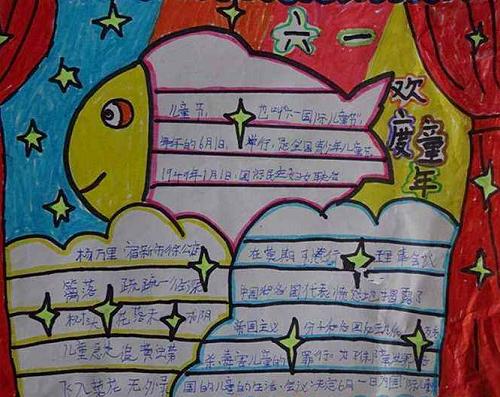 六一
欢度童年
儿童节, 也叫六一国际儿童节
每年的6月1日, 举行, 是全国青少年儿童节
1949年 月1日, 国际民主妇女联合
杨万里 宿新市徐公店
篱落 疏疏一径深
树头 花落未 阴
儿童急走追黄 蝶
飞入菜花 无处寻
在莫斯 行 理事会议
中国和各国代表 揭 露了
帝国主义 分子和各国
杀、毒害儿童的 罪行。为 保障世界各
国的儿童的生活 会议决定6月一日为国际儿童